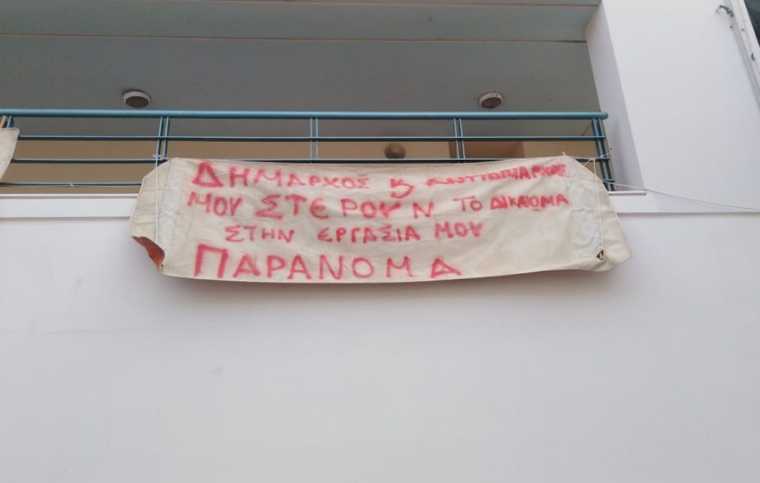 ΔΗΜΑΡΧΟΣ Κ ΑΝΤΙΔΗΜΑΡΧΟΣ
ΜΟΥ ΣΤΕΡΟΥΝ ΤΟ ΔΙΚΑΙΩΜΑ
ΣΤΗΝ ΕΡΓΑΣΙΑ ΜΟΥ
ΠΑΡΑΝΟΜΑ